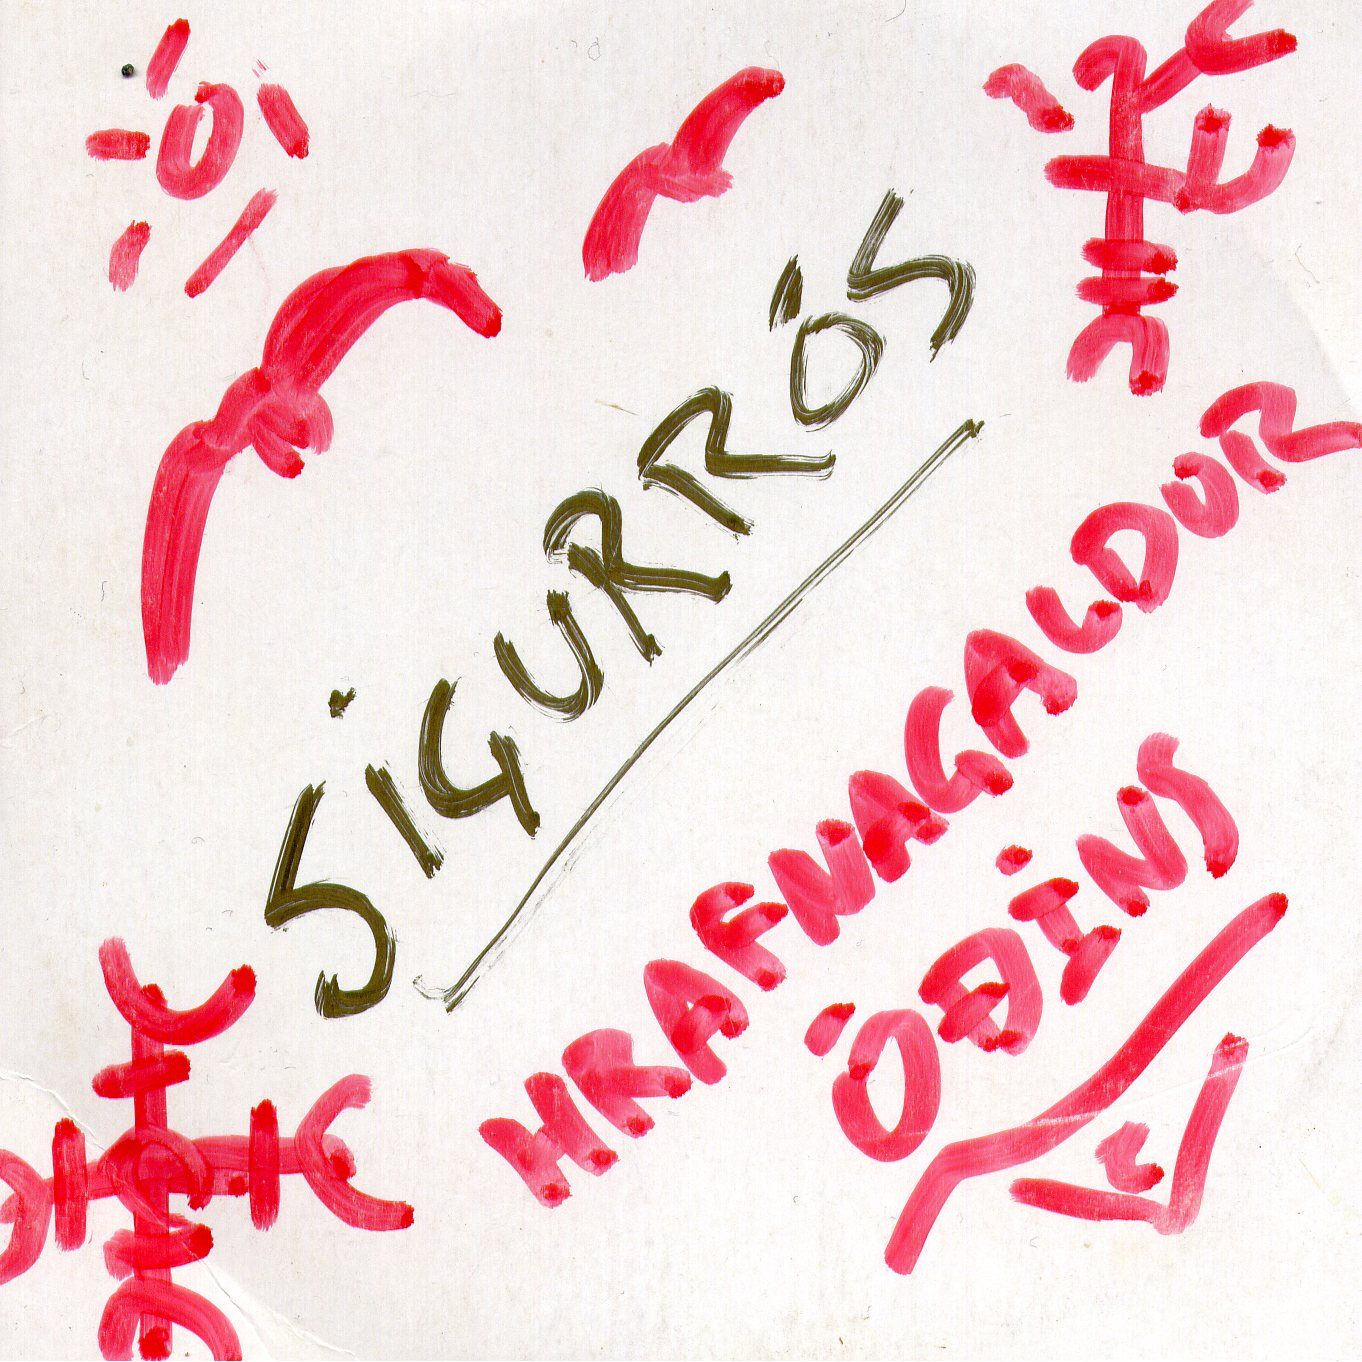 SiGURRÓS
HRAFNAGALDUR
ÓÐiNS